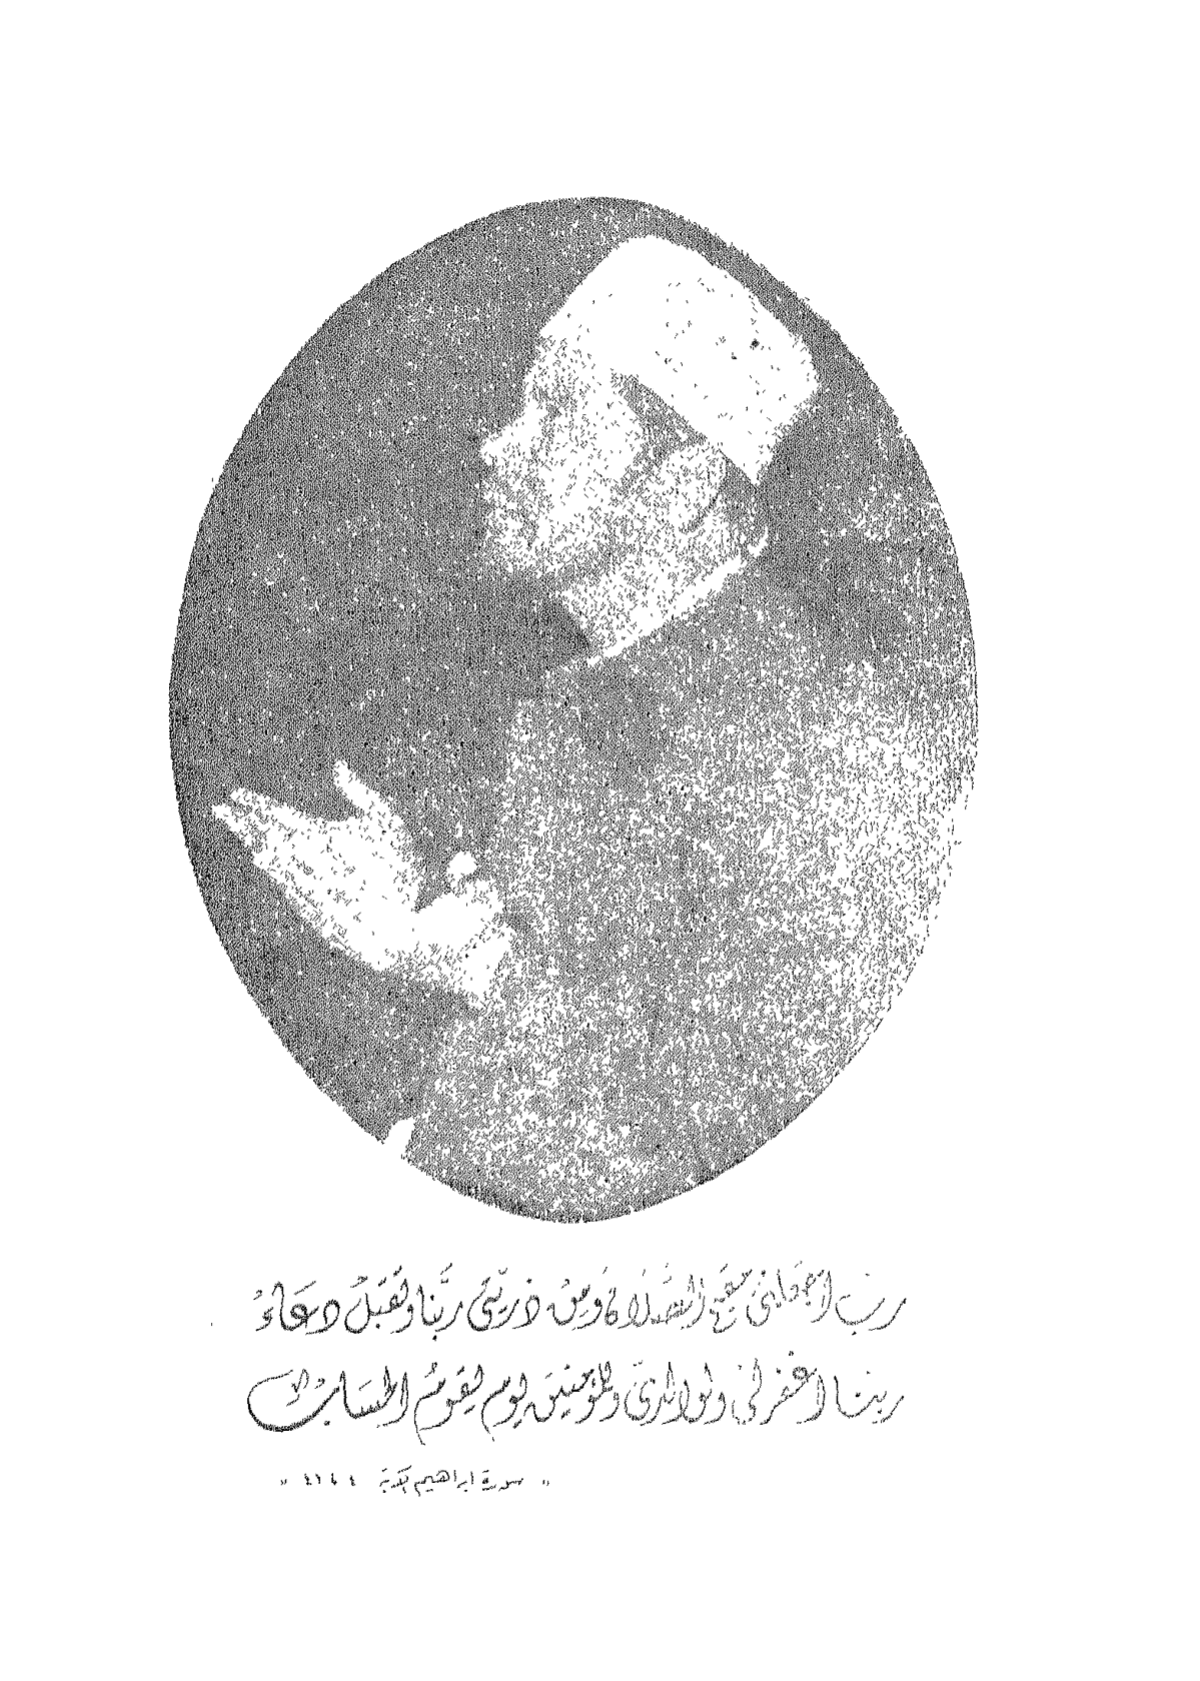 رب اجعلني مقيم الصلاة ومن ذريتي ربنا وتقبل دعاء
ربنا اغفر لي ولوالدي وللمؤمنين يوم يقوم الحساب
« سورة ابراهيم »